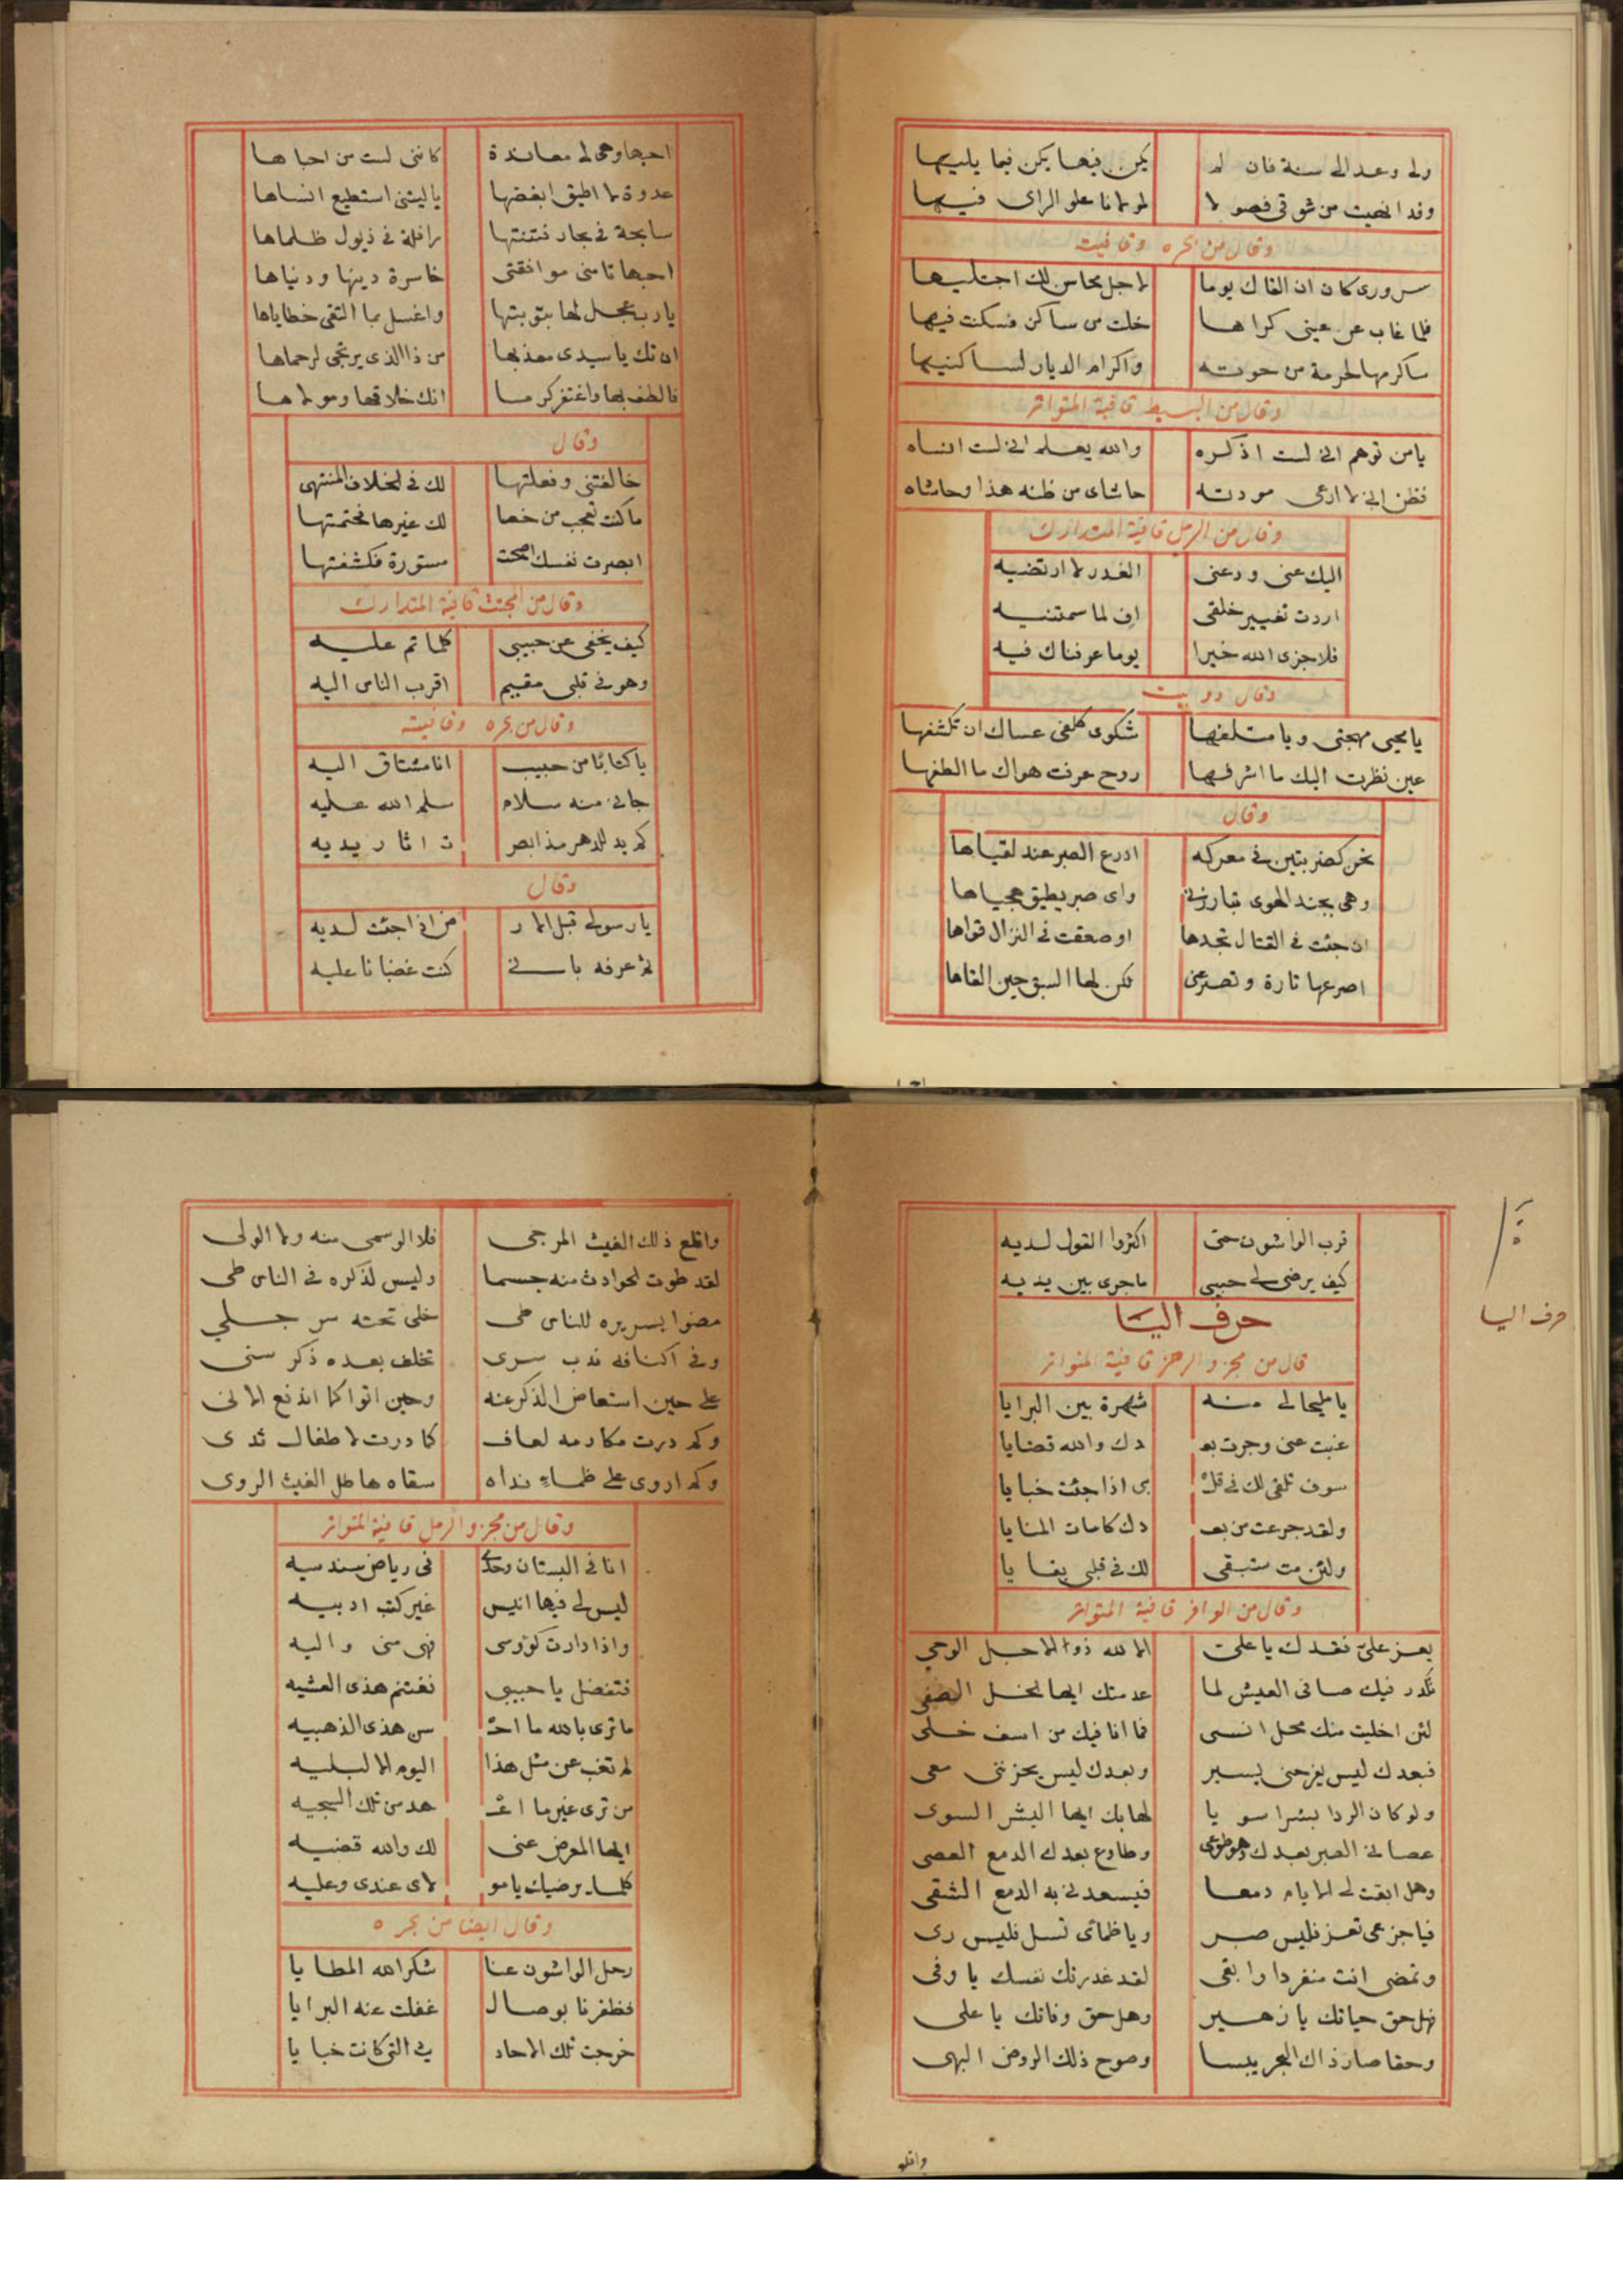 ولى وعد الى سنة فان لم يكن فيها يكن فيما يليها
وقد انهيت من شوقى فصولا لمولانا علو الراى فيها
وقال من بحره وقافيته
سرورى كان ان القاك يوما لاجل محاسن لك اجتليها
فلما غاب عن عينى كراها خلت من ساكن فسكنت فيها
ساكرمها لحرمة من حوته واكرام الديار لساكنيها
وقال من البسيط قافية المتواتر
يا من توهم انى لست اذكره والله يعلم انى لست انساه
فظن انى لا ارعى مودته حاشاى من ظنه هذا وحاشاه
وقال من الرمل قافية المتدارك
اليك عنى ودعنى الغدر لا ارتضيه
اردت تغيير خلقى اف لما سمتنيه
فلا جزى الله خيرا يوما عرفناك فيه
وقال دو بيت
يا محيى مهجتى ويا متلفها شكوى كلفى عساك ان تكشفها
عين نظرت اليك ما اشرفها روح عرفت هواك ما الطفها
وقال
نحن كضربتين فى معركه ادرع الصبر عند لقياها
وهى بجند الهوى تبارزنى واى صبر يطيق هيجاها
ان جئت فى القتال تجدها او صعقت فى النزال قواها
اصرعها تارة وتصرعنى لكن لها السبق حين القاها
احبها وهى لى معاندة كاننى لست من احباها
عدوة لا اطيق ابغضها ياليتنى استطيع انساها
سابحة فى بحار فتنتها رافلة فى ذيول ظلماها
احبها تاسنى موافقتى خاسرة دينها ودنياها
يارب عجل لها بتوبتها واغسل بما التقى خطاياها
ان تك يا سيدى معذبها من ذا الذى يرتجى لرحماها
فالطف بها واغتفر كرما انك خلاقها ومولاها
وقال
خالفتنى وفعلتها لك فى الخلاف المنتهى
ما كنت تعجب من خها لك غيرها فختمتها
ابصرت نفسك اصبحت مستورة فكشفتها
وقال من المجتث قافية المتدارك
كيف يخفى عن حبيبى كلما تم عليه
وهو فى قلبى مقيم اقرب الناس اليه
وقال من بحره وقافيته
يا كتابا من حبيب انا مشتاق اليه
جانى منه سلام سلم الله عليه
كم يد للدهر مذ ابصر ت اثار يديه
وقال
يا رسولى قبل الار ض اذا جئت لديه
ثم عرفه بانى كنت غضبانا عليه
قرب الواشون حتى اكثروا القول لديه
كيف يرضى لى حبيبى ما جرى بين يديه
حرف اليا
حرف اليا
قال من مجزو الرجز قافية المتواتر
يا مليحا لى منه شهرة بين البرايا
غبت عنى وجرت بعـ دك والله قضايا
سوف تلقى لك فى قلـ بى اذا جئت خبايا
ولقد جرعت من بعـ دك كاسات المنايا
ولئن مت ستبقى لك فى قلبى بقايا
وقال من الوافر قافية المتواتر
يعز علىّ فقدك يا على الا لله ذوا الاجل الوحى
تكدر فيك صافى العيش لما عدمتك ايها الخل الصفى
لئن اخليت منك محل انسى فما انا فيك من اسف خلى
فبعدك ليس يفرحنى بسير وبعدك ليس يحزننى نعى
ولو كان الردا بشرا سويا لهابك ايها البشر السوى
عصانى الصبر بعدك وهو طوعى وطاوع بعدك الدمع العصى
وهل ابقت لى الايام دمعا فيسعدنى به الدمع الشقى
فيا جزعى تعز فليس صبر ويا ظمائى تسل فليس رى
وتمضى انت منفردا وابقى لقد غدرتك نفسك يا وفى
فهل حق حياتك يا زهير وهل حق وفاتك يا على
وحقا صار ذاك البحر يبسا وصوح ذلك الروض البهى
واقلع
واقلع ذلك الغيث المرجى فلا الوسمى منه ولا الولى
لقد طوت الحوادث منه جسما وليس لذكره فى الناس طى
مضوا بسريره للناس طى خلى تحته سر جلى
وفى اكنافه ندب سرى تخلف بعده ذكر سنى
على حين استعاض الذكر عنه وحين اتوا كما اندفع الاتى
وكم درت مكارمه لعاف كما درت لاطفال ثدى
وكم اروى على ظماء نداه سقاه هاطل الغيث الروى
وقال من مجزو الرمل قافية المتواتر
انا فى البستان وحدى فى رياض سندسيه
ليس لى فيها انيس غير كتب ادبيه
واذا دارت كؤوسى فهى منى واليه
فتفضل يا حبيبى نغتنم هذى العشيه
ما ترى بالله ما احـ سن هذى الذهبيه
لم تغب عن مثل هذا اليوم الا لبليه
من ترى غير ما اعـ هد من تلك السجيه
ايها المعرض عنى لك والله قضيه
كلما يرضيك يا مو لاى عندى وعليه
وقال ايضا من بحره
رحل الواشون عنا شكر الله المطايا
فظفرنا بوصال غفلت عنه البرايا
خرجت تلك الاحاد يث التى كانت خبايا